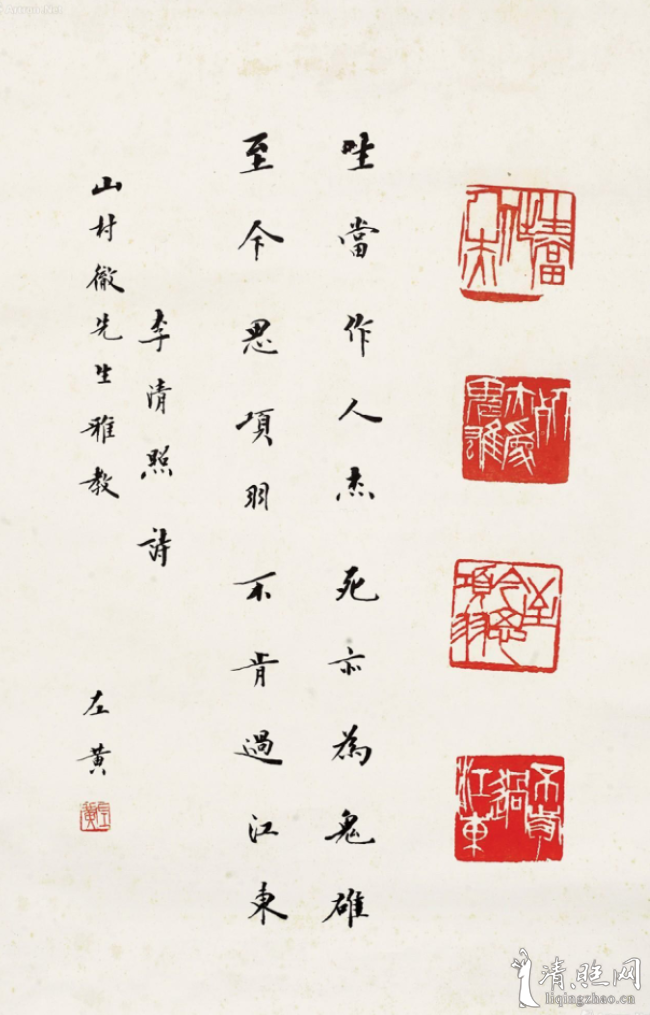 生當作人杰
死亦為鬼雄
至今思項羽
不肯過江東
生當作人杰死亦為鬼雄
至今思項羽不肯過江東
李清照詩
山村徹先生雅教 左黄
左黄
清照网
liqingzhao.cn